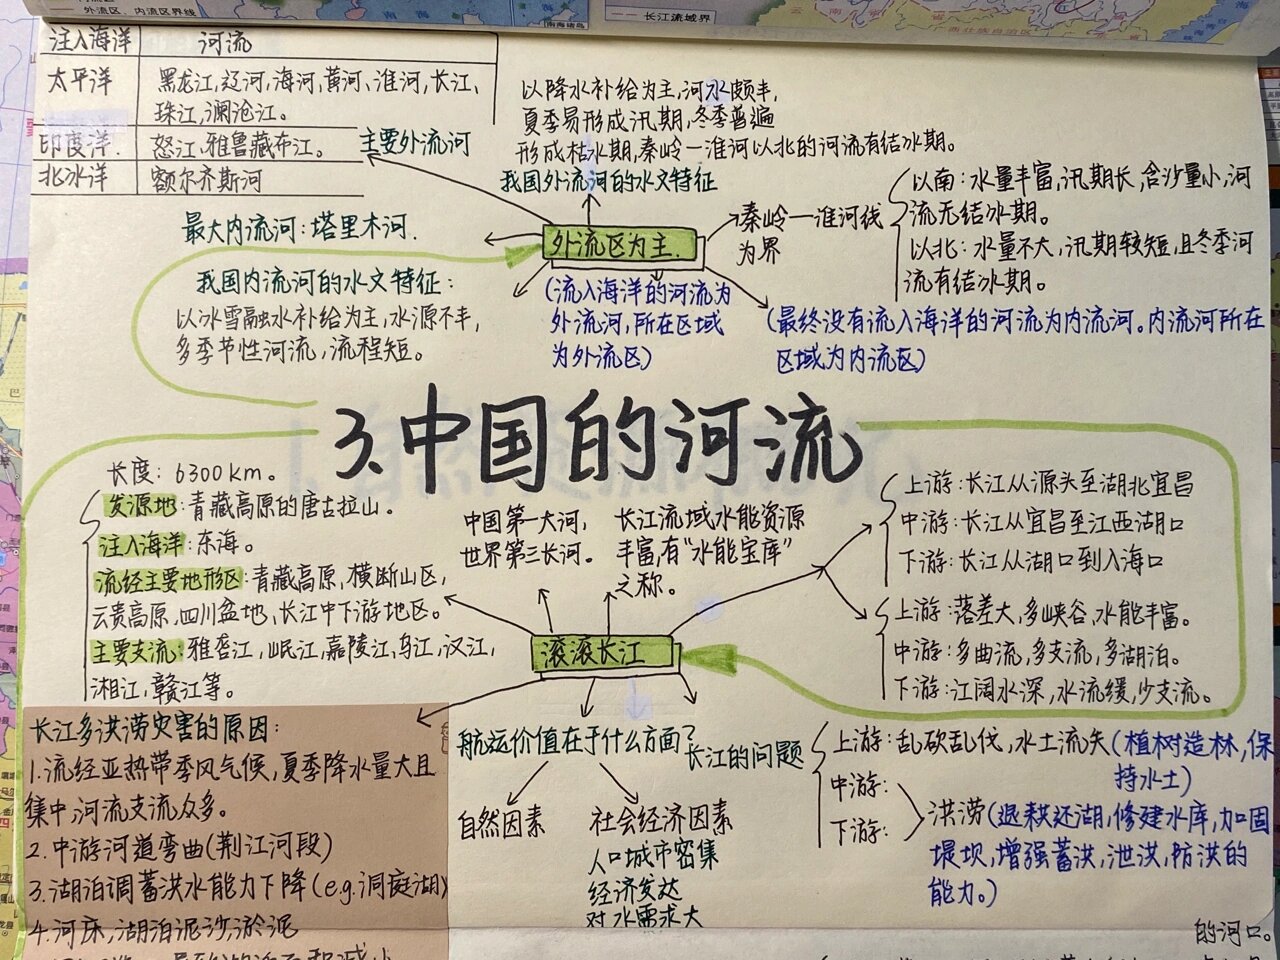 外流区、内流区界线
南海诸岛
长江流域界
注入海洋 河流
太平洋 黑龙江,辽河,海河,黄河,淮河,长江、
珠江,澜沧江。
印度洋. 怒江,雅鲁藏布江。
北冰洋 额尔齐斯河
主要外流河
以降水补给为主,河水颇丰,
夏季易形成汛期,冬季普遍
形成枯水期,秦岭一淮河以北的河流有结冰期。
我国外流河的水文特征
最大内流河:塔里木河.
外流区为主.
秦岭一淮河线
为界
以南:水量丰富,汛期长,含沙量小,河
流无结冰期。
以北:水量不大,汛期较短,且冬季河
流有结冰期。
我国内流河的水文特征:
以冰雪融水补给为主,水源不丰,
多季节性河流,流程短。
(流入海洋的河流为
外流河,所在区域
为外流区)
(最终没有流入海洋的河流为内流河。内流河所在
区域为内流区)
3.中国的河流
长度:6300km。
发源地:青藏高原的唐古拉山。
注入海洋:东海。
流经主要地形区:青藏高原,横断山区,
云贵高原,四川盆地、长江中下游地区。
主要支流:雅砻江,岷江,嘉陵江,乌江,汉江,
湘江,赣江等。
中国第一大河,
世界第三长河.
长江流域水能资源
丰富,有“水能宝库”
之称.
上游:长江从源头至湖北宜昌
中游:长江从宜昌至江西湖口
下游:长江从湖口到入海口
上游:落差大,多峡谷,水能丰富。
中游:多曲流,多支流,多湖泊。
下游:江阔水深,水流缓,少支流。
滚滚长江
长江多洪涝灾害的原因:
1.流经亚热带季风气候,夏季降水量大且
集中,河流支流众多。
2.中游河道弯曲(荆江河段)
3.湖泊调蓄洪水能力下降(e.g.洞庭湖)
4.河床,湖泊泥沙淤泥
航运价值在于什么方面?
自然因素
社会经济因素
人口城市密集
经济发达
对水需求大
长江的问题
上游:乱砍乱伐,水土流失(植树造林,保
持水土)
中游:
下游:
洪涝(退耕还湖,修建水库,加固
堤坝,增强蓄洪,泄洪,防洪的
能力。)
的河口。